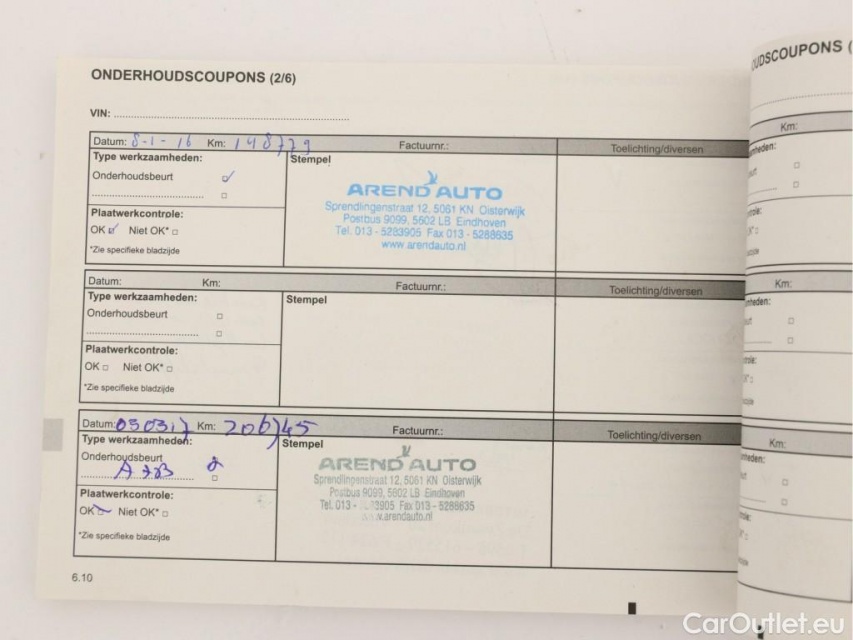 ONDERHOUDSCOUPONS (2/6)
VIN:
Datum: 8-1-16 Km: 148779 Factuurnr.: Toelichting/diversen
Type werkzaamheden: Stempel
Onderhoudsbeurt
AREND AUTO
Sprendlingenstraat 12, 5061 KN Oisterwijk
Postbus 9099, 5602 LB Eindhoven
Tel. 013 - 5283905 Fax 013 - 5288635
www.arendauto.nl
Plaatwerkcontrole:
OK Niet OK*
*Zie specifieke bladzijde
Datum: Km: Factuurnr.: Toelichting/diversen
Type werkzaamheden: Stempel
Onderhoudsbeurt
Plaatwerkcontrole:
OK Niet OK*
*Zie specifieke bladzijde
Datum: 050317 Km: 206745 Factuurnr.: Toelichting/diversen
Type werkzaamheden: Stempel
Onderhoudsbeurt
AREND AUTO
Sprendlingenstraat 12, 5061 KN Oisterwijk
Postbus 9099, 5602 LB Eindhoven
Tel. 013 - 3905 Fax 013 - 5288635
.arendauto.nl
Plaatwerkcontrole:
OK Niet OK*
*Zie specifieke bladzijde
6.10
OUDSCOUPONS (
Km:
Km:
Km:
CarOutlet.eu